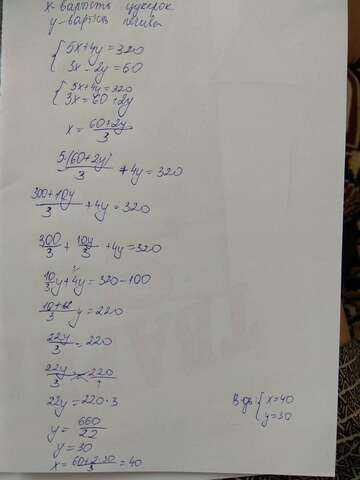 x-вартість цукерок
y-вартість печива
{5x+4y=320
3x-2y=60
{5x+4y=320
3x=60+2y
x=60+2y/3
5(60+2y)/3+4y=320
300+10y/3+4y=320
300/3+10y/3+4y=320
10/3y+4y=320-100
10+12/3y=220
22y/3=220
22y/3=220/1
22y=220·3
y=660/22
y=30
x=60+2·30/3=40
Відп:{x=40
y=30